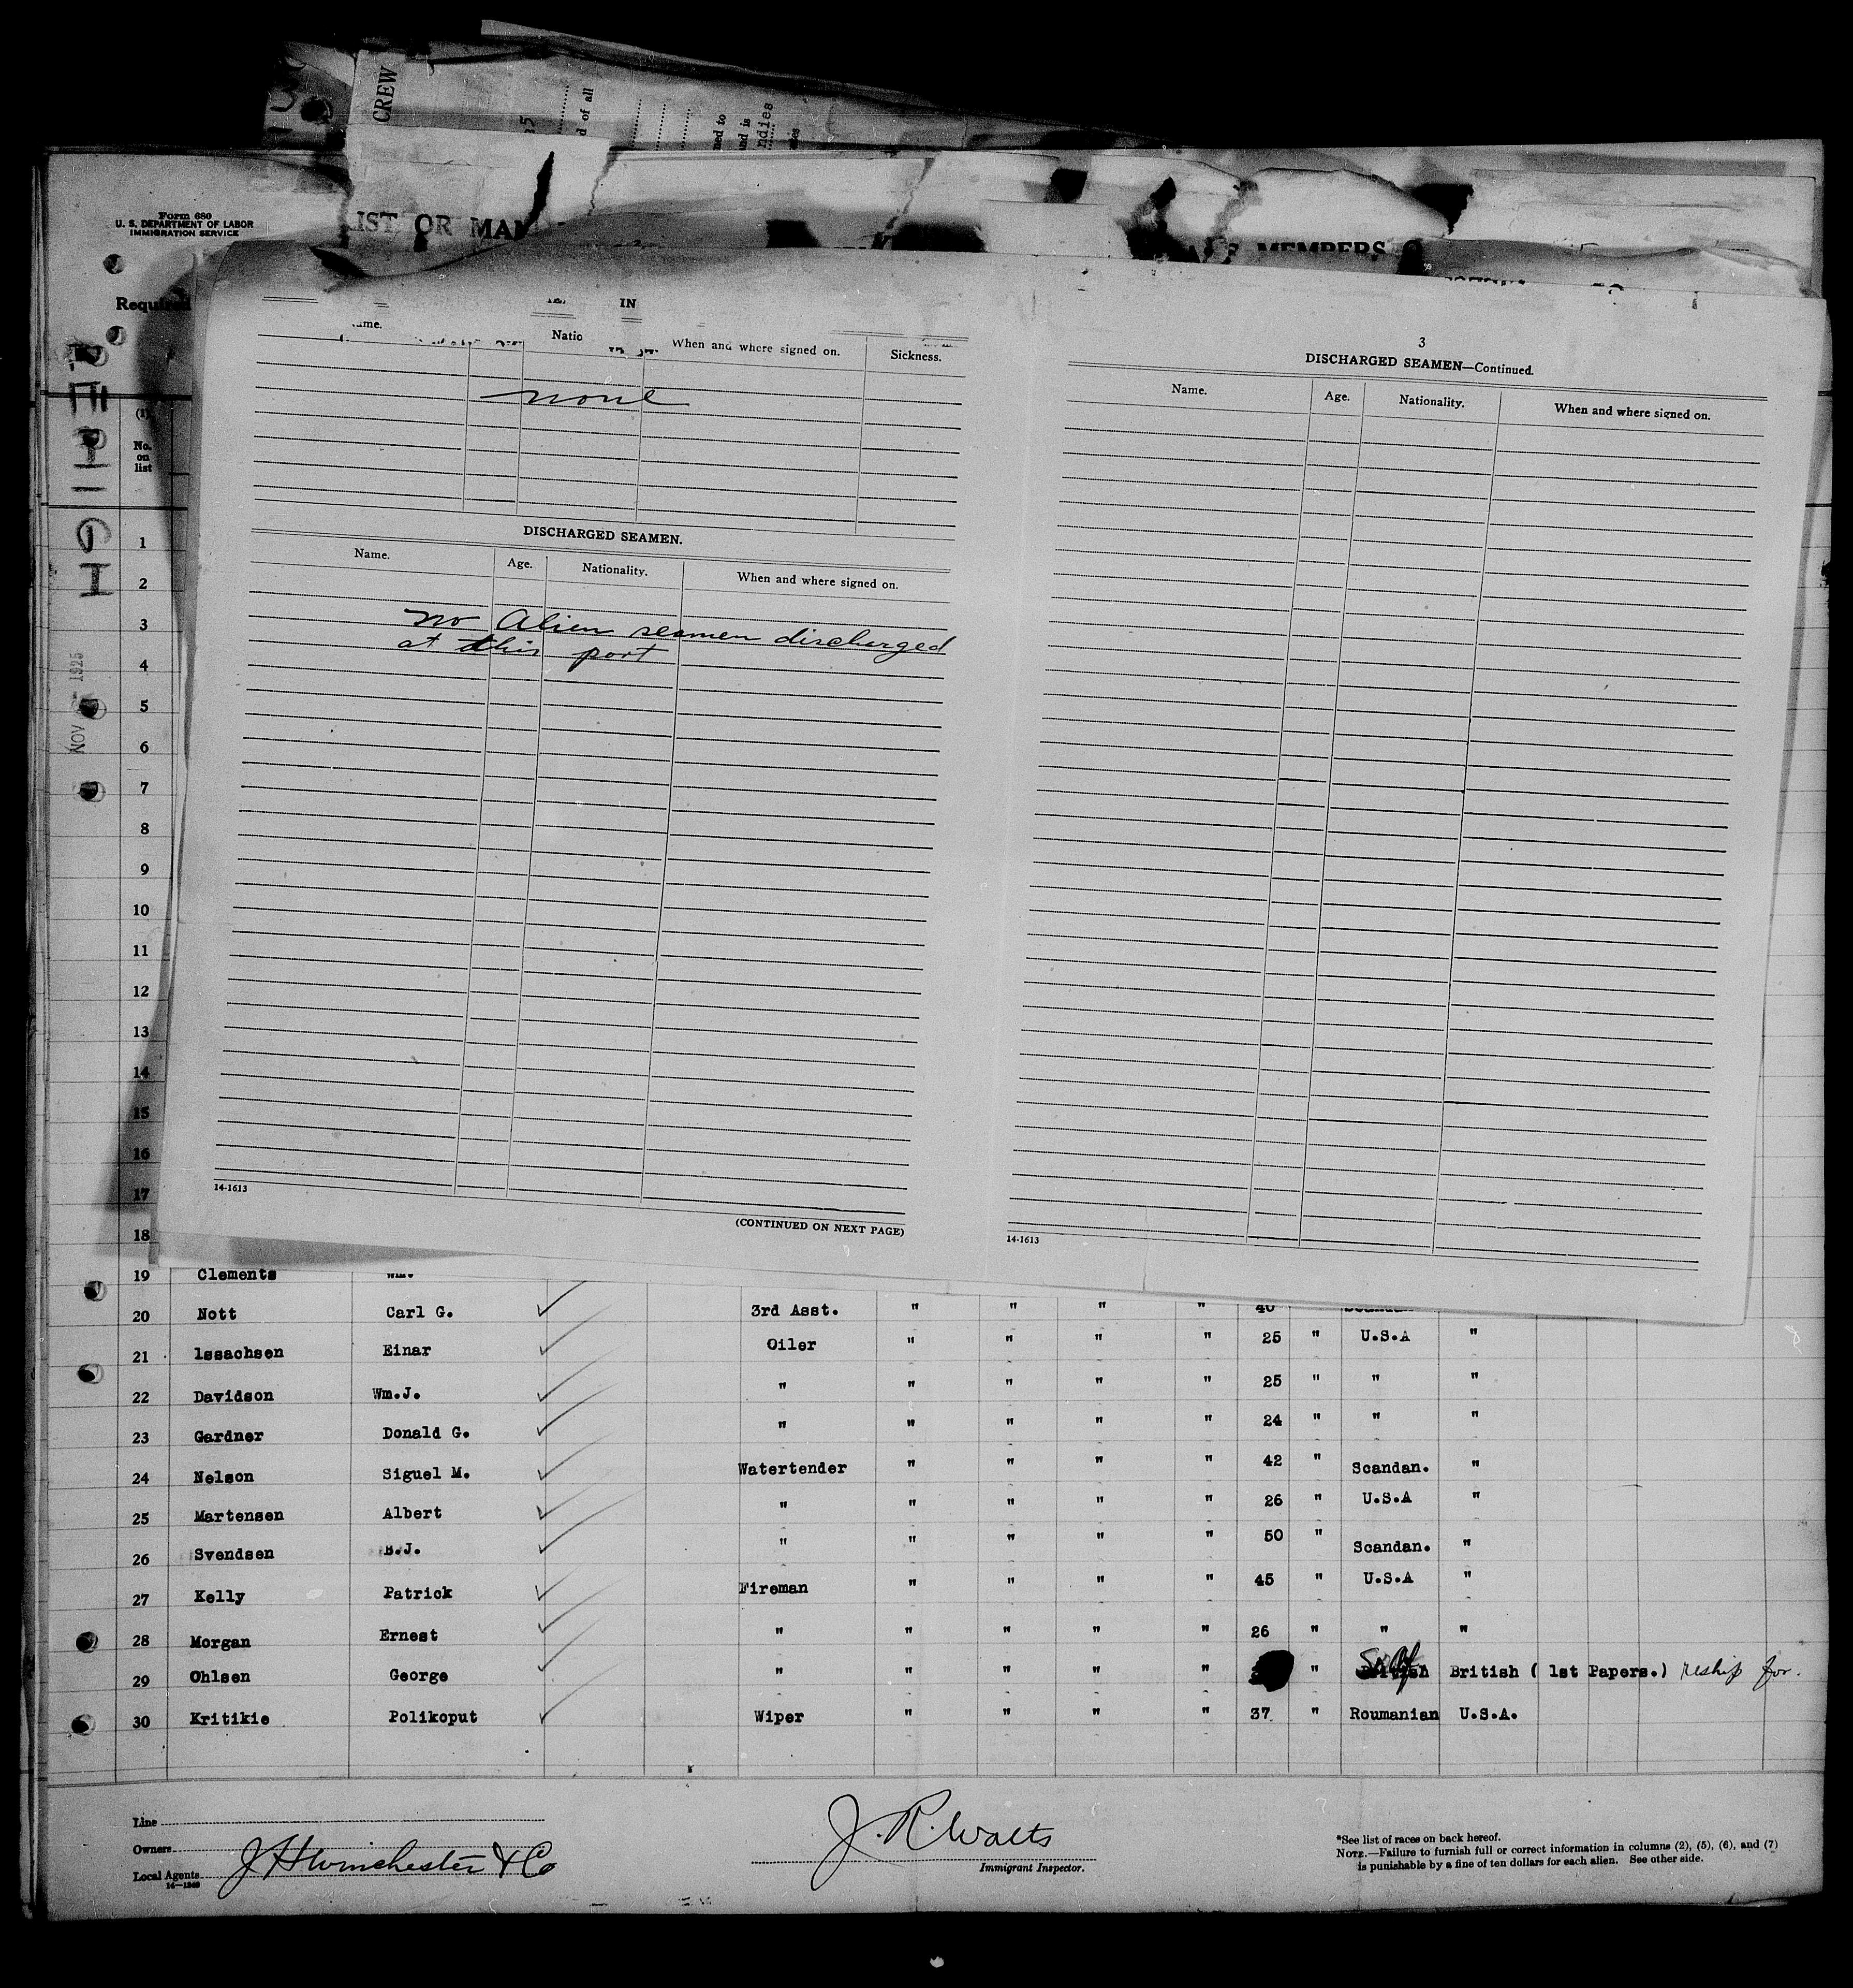 CREW
d of all
ned to
and is
ndies
Form 680
U. S. DEPARTMENT OF LABOR
IMMIGRATION SERVICE
LIST OR MAN
MEMBERS
Required
IN
Name.
When and where signed on.
Sickness.
none
DISCHARGED SEAMEN.
Name. Age. Nationality. When and where signed on.
no Alien seamen discharged
at this port
14-1613
(CONTINUED ON NEXT PAGE)
3
DISCHARGED SEAMEN—Continued.
Name. Age. Nationality. When and where signed on.
14-1613
(1)
No.
on
list
NOV 1925
1
2
3
4
5
6
7
8
9
10
11
12
13
14
15
16
17
18
19 Clements Wm.
20 Nott Carl G. 3rd Asst. " " " " 40
21 Issachsen Einar Oiler " " " " 25 " U.S.A "
22 Davidson Wm.J. " " " " " 25 " " "
23 Gardner Donald G. " " " " " 24 " " "
24 Nelson Siguel M. Watertender " " " " 42 " Scandan. "
25 Martensen Albert " " " " " 26 " U.S.A "
26 Svendsen B.J. " " " " " 50 " Scandan. "
27 Kelly Patrick Fireman " " " " 45 " U.S.A "
28 Morgan Ernest " " " " " 26 " " "
29 Ohlsen George " " " " " " British ( 1st Papers.) reship for.
30 Kritikie Polikoput Wiper " " " " 37 " Roumanian U.S.A.
Line
Owners
Local Agents J H Winchester & Co
14—1240
J. R. Watts
Immigrant Inspector.
*See list of races on back hereof.
NOTE.—Failure to furnish full or correct information in columns (2), (5), (6), and (7)
is punishable by a fine of ten dollars for each alien. See other side.